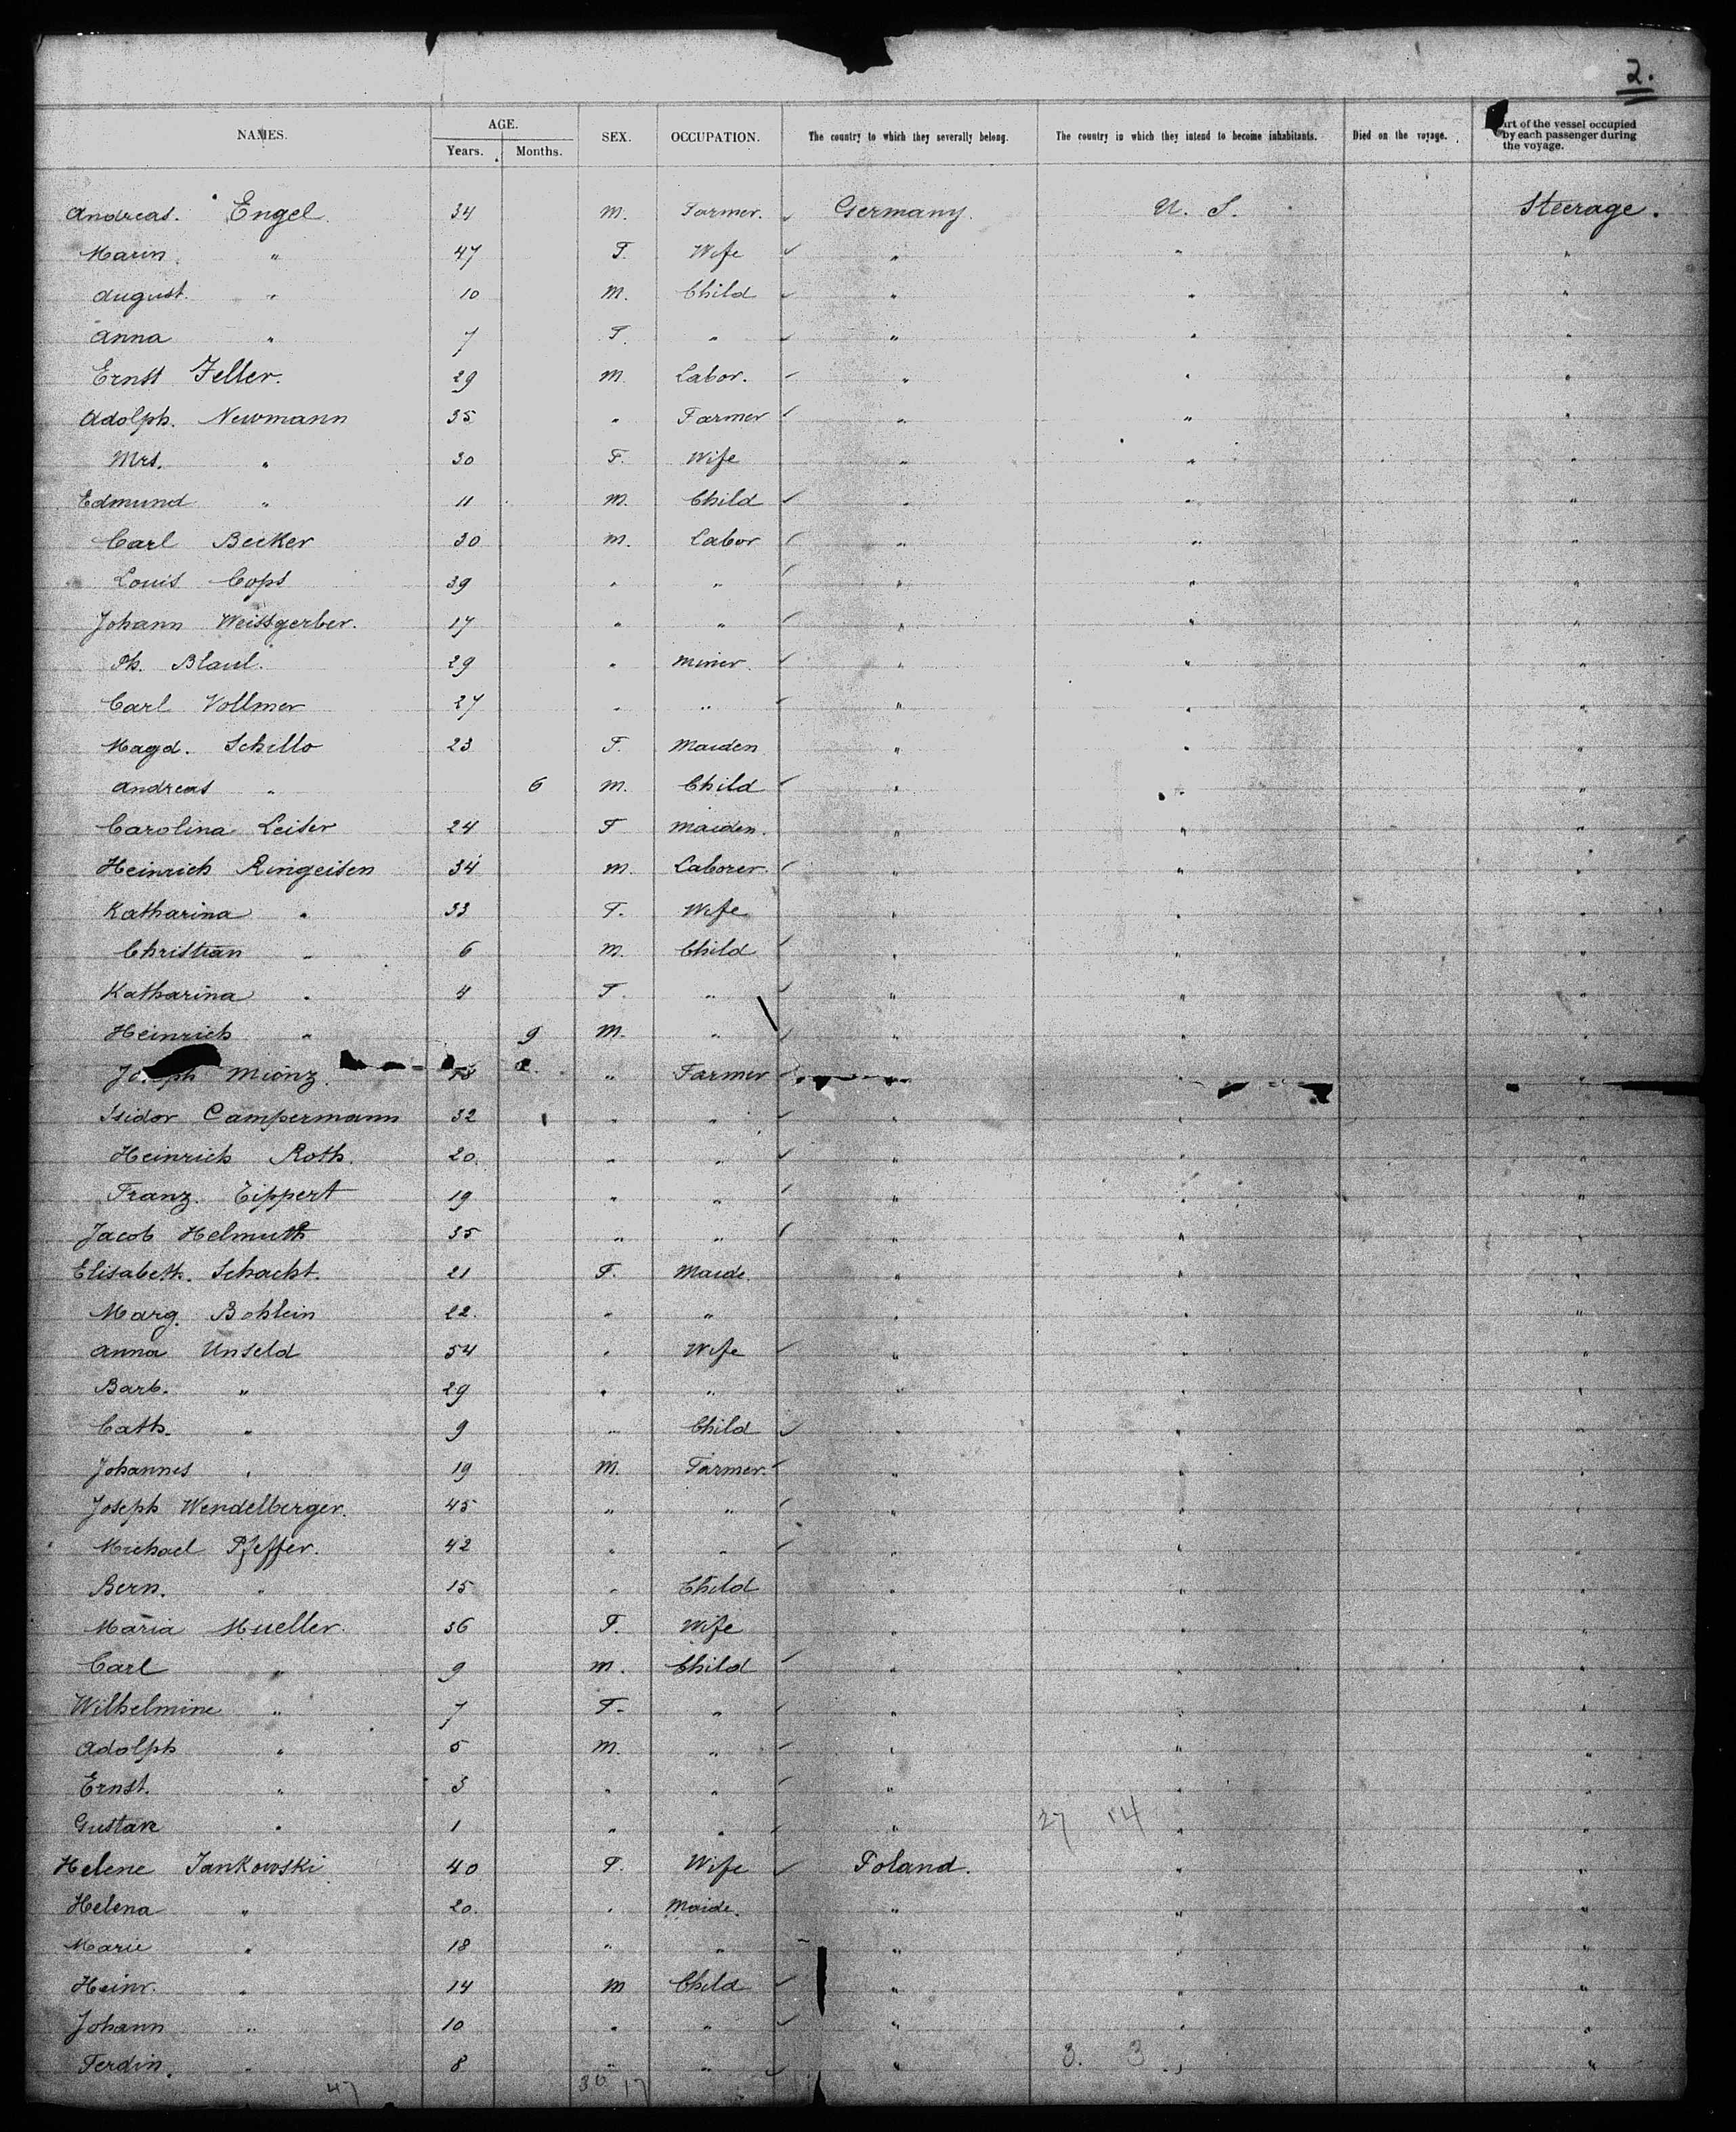 2.
NAMES. AGE. Years. Months. SEX. OCCUPATION. The country to which they severally belong. The country in which they intend to become inhabitants. Died on the voyage. Part of the vessel occupied by each passenger during the voyage.
Andreas. Engel. 34 M. Farmer. Germany. U. S. Steerage.
Marin. " 47 F. Wife " " "
August. " 10 M. Child " " "
Anna " 7 F. " " " "
Ernst Feller. 29 M. Labor. " " "
Adolph. Newmann 35 " Farmer " " "
Mrs. " 30 F. Wife " " "
Edmund " 11 M. Child " " "
Carl Becker 30 M. Labor " " "
Louis Cops 39 " " " " "
Johann Weissgerber. 17 " " " " "
Ph. Blaul. 29 " Miner. " " "
Carl Vollmer 27 " " " " "
Magd. Schillo 23 F. Maiden " " "
Andreas " 6 M. Child " " "
Carolina Leiser 24 F Maiden. " " "
Heinrich Ringeisen 34 M. Laborer. " " "
Katharina " 33 F. Wife " " "
Christian " 6 M. Child " " "
Katharina " 4 F. " " " "
Heinrich " 9 M. " " " "
Mionz. " Farmer " "
Isidor Campermann 32 " " " " "
Heinrich Roth. 20. " " " " "
Franz. Tippert 19 " " " " "
Jacob Helmuth 35 " " " " "
Elisabeth. Schacht. 21 F. Maide. " " "
Marg. Bohlein 22. " " " " "
Anna Unseld 54 " Wife " " "
Barb. " 29 " " " " "
Cath. " 9 " Child " " "
Johannes " 19 M. Farmer. " " "
Joseph Wendelberger. 45 " " " " "
Michael Pfeffer. 42 " " " " "
Bern. " 15 " Child " " "
Maria Mueller. 36 F. Wife " " "
Carl " 9 M. Child " " "
Wilhelmine " 7 F. " " " "
Adolph " 5 M. " " " "
Ernst. " 3 " " " " "
Gustave " 1 " " " 27 14 " "
Helene Jankowski 40 F. Wife Poland. " "
Helena " 20. " Maide. " " "
Marie " 18 " " " " "
Heinr. " 14 M Child " " "
Johann " 10 " " " " "
Ferdin. " 8 " " " 3. 3 " "
47 30 17